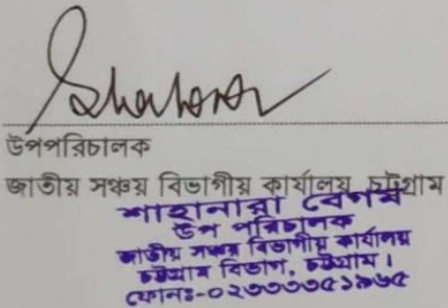 উপপরিচালক
জাতীয় সঞ্চয় বিভাগীয় কার্যালয়, চট্টগ্রাম
শাহানারা বেগম
উপ পরিচালক
জাতীয় সঞ্চয় বিভাগীয় কার্যালয়
চট্টগ্রাম বিভাগ, চট্টগ্রাম।